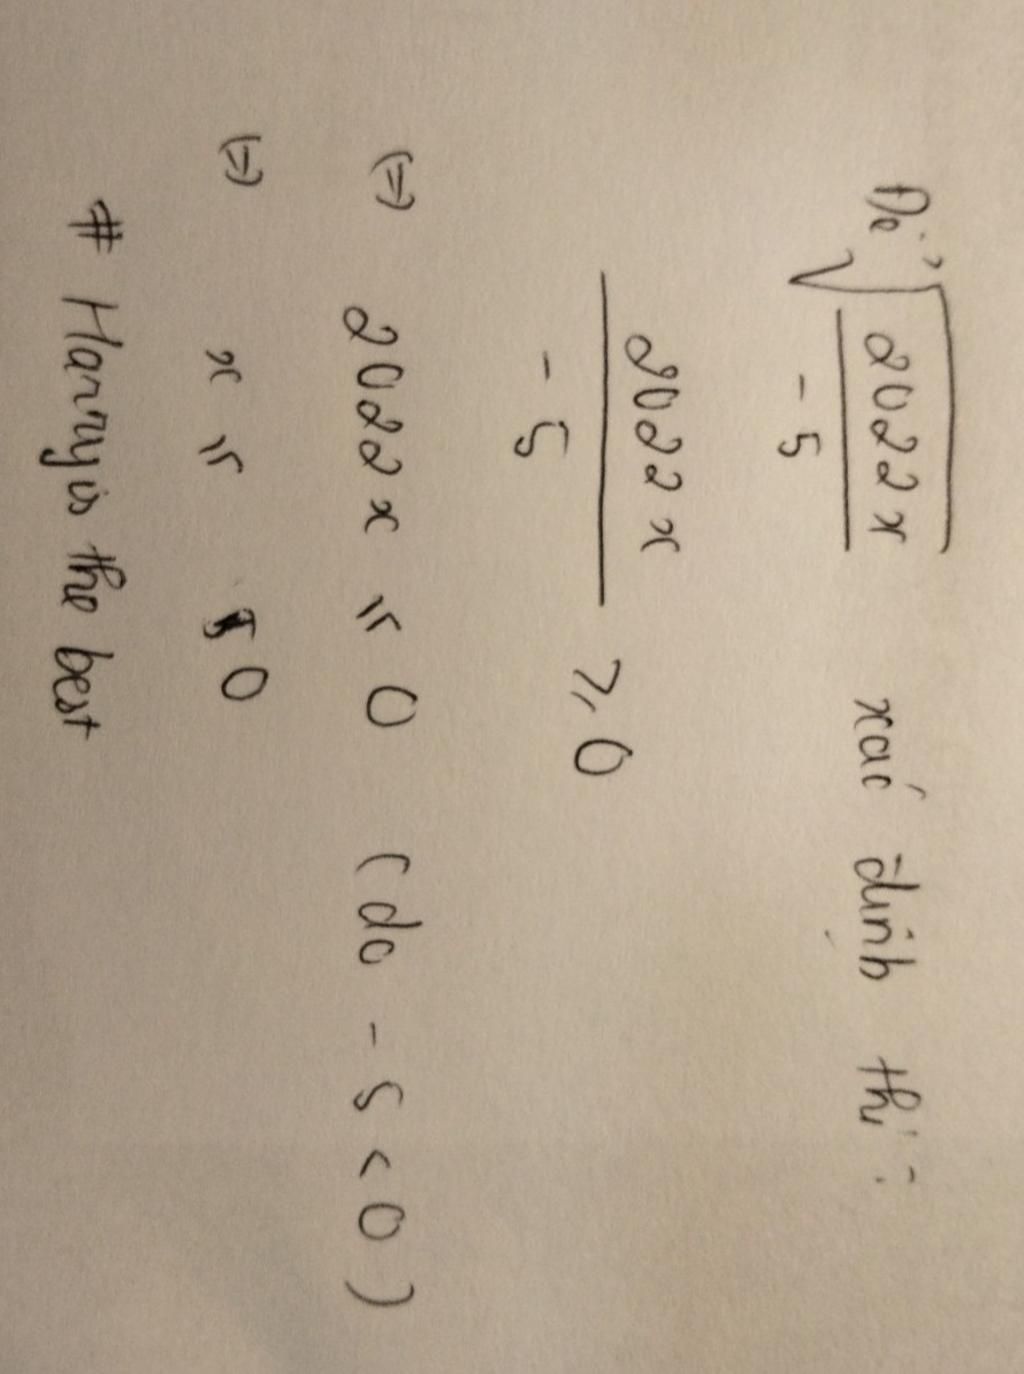 Để √(2022x / -5) xác định thì:
2022x / -5 ⩾ 0
(=) 2022x ⩽ 0 (do -5 < 0)
(=) x ⩽ 0
# Harry is the best